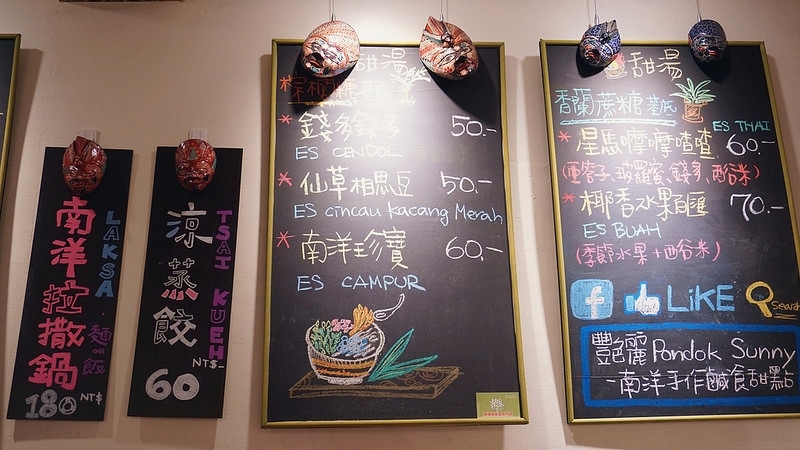 南洋拉撒鍋
LAKSA
麵or飯
180 NT$
涼蒸餃
TSAI KUEH
NT$-
60
甜湯
棕櫚糖
* 錢多錢多 50.-
ES CENDOL
* 仙草相思豆 50.-
ES cincau kacang Merah
* 南洋珍寶 60.-
ES CAMPUR
甜湯
香蘭蔗糖基底
ES THAI
* 星馬摩摩喳喳 60.-
(亞答子、菠羅蜜、錢多、西谷米)
* 椰香水果百匯 70.-
ES BUAH
(季節水果+西谷米)
f LiKE Search
豐艷麗 Pondok Sunny
-南洋手作鹹食甜點